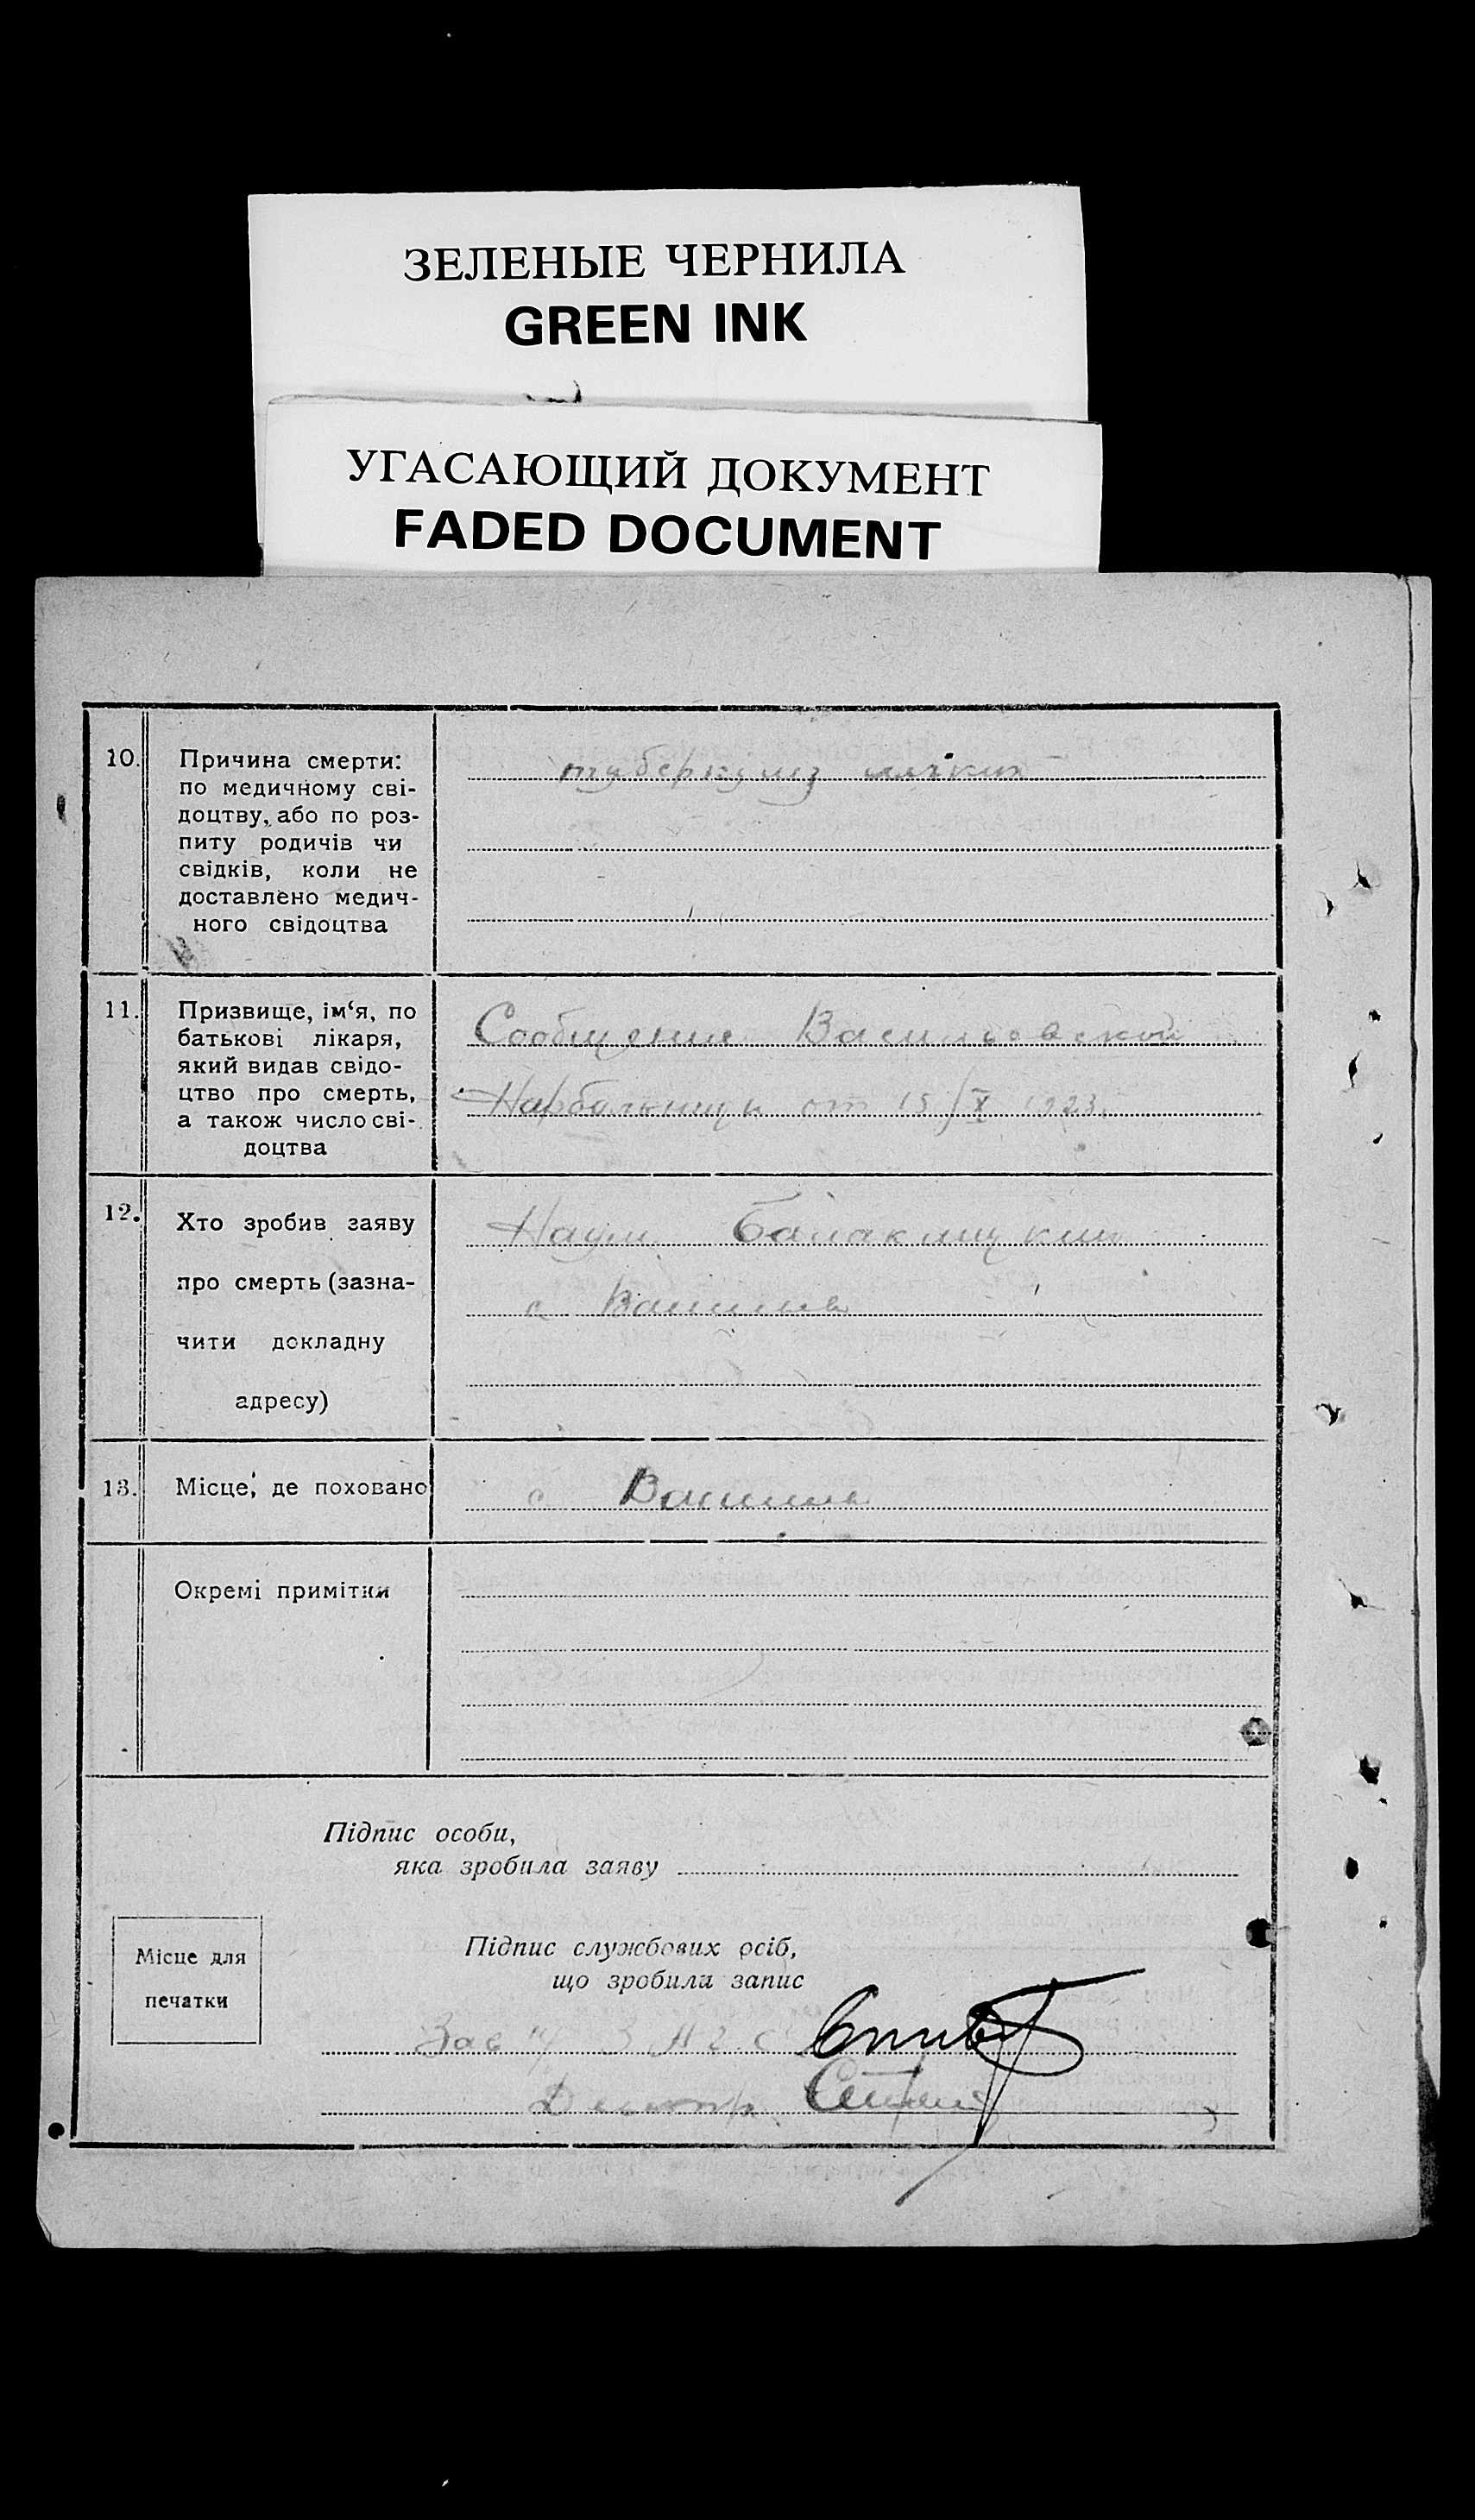 ЗЕЛЕНЫЕ ЧЕРНИЛА
GREEN INK
УГАСАЮЩИЙ ДОКУМЕНТ
FADED DOCUMENT
10.
Причина смерти:
по медичному сві-
доцтву, або по роз-
питу родичів чи
свідків, коли не
доставлено медич-
ного свідоцтва
туберкулез легких
11.
Призвище, ім‘я, по
батькові лікаря,
який видав свідо-
цтво про смерть,
а також число сві-
доцтва
Сообщение Васильевской
Нарбольницы от 15/X 1923.
12.
Хто зробив заяву
про смерть (зазна-
чити докладну
адресу)
Наум
с
13.
Місце, де поховано
с
Окремі примітки
Підпис особи,
яка зробила заяву
Місце для
печатки
Підпис службових осіб,
що зробили запис
Зав